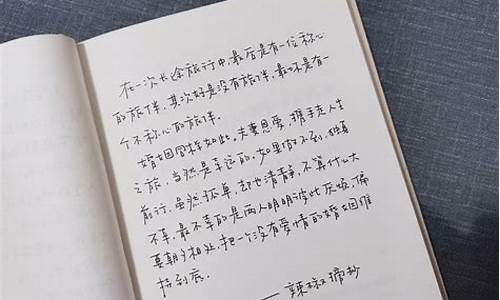 在一次长途旅行中,最好是有一位称心
的旅伴,其次好是没有旅伴,最坏是有一
个不称心的旅伴。
婚姻同样如此。夫妻恩爱,携手走人生
之旅,当然是幸运的。如果做不到,独自
前行,虽然孤单,却也清静,不算什么大
不幸。最不幸的是两人明明彼此厌烦,偏
要朝夕相处,把一个没有爱情的婚姻维
持到底。
摘抄